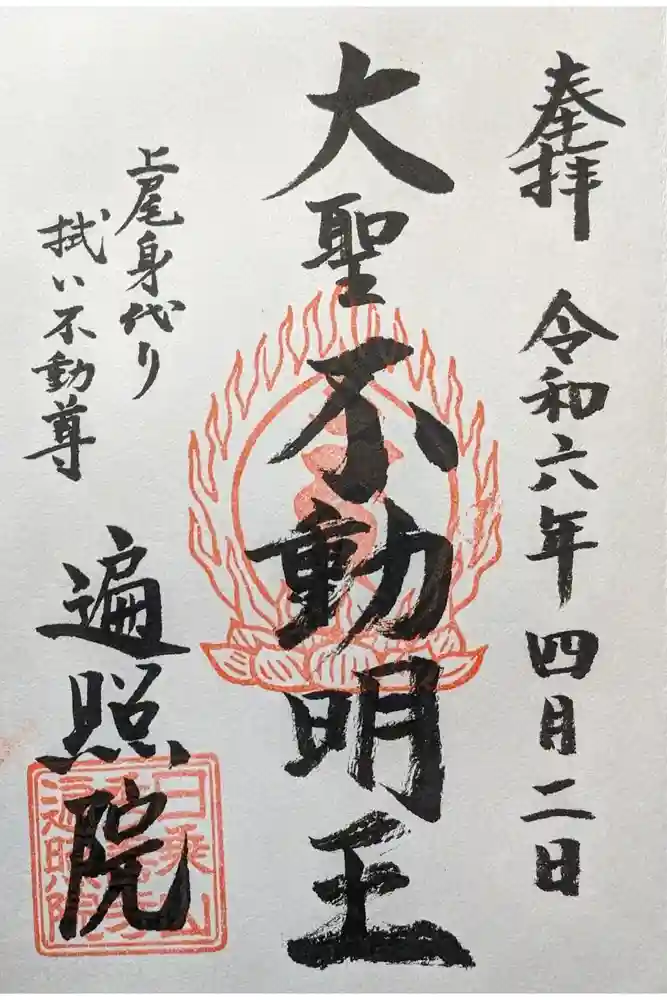 奉拝
令和六年四月二日
大聖不動明王
上尾身代り
拭い不動尊
遍照院
日乗山
遍照院